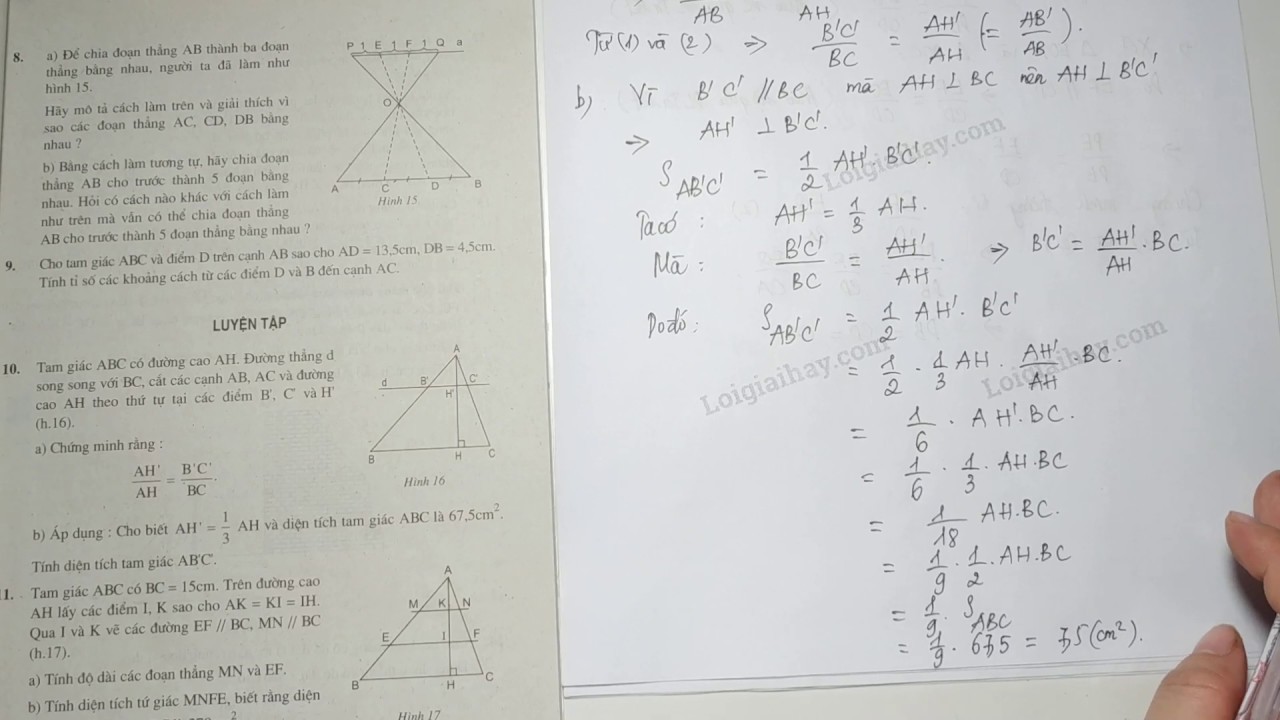 8. a) Để chia đoạn thẳng AB thành ba đoạn
thẳng bằng nhau, người ta đã làm như
hình 15.
Hãy mô tả cách làm trên và giải thích vì
sao các đoạn thẳng AC, CD, DB bằng
nhau ?
b) Bằng cách làm tương tự, hãy chia đoạn
thẳng AB cho trước thành 5 đoạn bằng
nhau. Hỏi có cách nào khác với cách làm
như trên mà vẫn có thể chia đoạn thẳng
AB cho trước thành 5 đoạn thẳng bằng nhau ?
P 1 E 1 F 1 Q a
O
A C D B
Hình 15
9. Cho tam giác ABC và điểm D trên cạnh AB sao cho AD = 13,5cm, DB = 4,5cm.
Tính tỉ số các khoảng cách từ các điểm D và B đến cạnh AC.
LUYỆN TẬP
10. Tam giác ABC có đường cao AH. Đường thẳng d
song song với BC, cắt các cạnh AB, AC và đường
cao AH theo thứ tự tại các điểm B', C' và H'
(h.16).
a) Chứng minh rằng :
AH'/AH = B'C'/BC.
A
d B' C'
H'
B H C
Hình 16
b) Áp dụng : Cho biết AH' = 1/3 AH và diện tích tam giác ABC là 67,5cm².
Tính diện tích tam giác AB'C'.
1. Tam giác ABC có BC = 15cm. Trên đường cao
AH lấy các điểm I, K sao cho AK = KI = IH.
Qua I và K vẽ các đường EF // BC, MN // BC
(h.17).
a) Tính độ dài các đoạn thẳng MN và EF.
b) Tính diện tích tứ giác MNFE, biết rằng diện
A
M K N
E I F
B H C
Hình 17
AB AH
Từ (1) và (2) => B'C'/BC = AH'/AH (= AB'/AB).
b) Vì B'C' // BC mà AH ⊥ BC nên AH ⊥ B'C'
=> AH' ⊥ B'C'.
S AB'C' = 1/2 AH'. B'C'.
Ta có : AH' = 1/3 AH.
Mà : B'C'/BC = AH'/AH. => B'C' = AH'/AH . BC.
Do đó : S AB'C' = 1/2 AH'. B'C'
= 1/2 . 1/3 AH . AH'/AH . BC.
= 1/6 . AH'. BC.
= 1/6 . 1/3 . AH.BC
= 1/18 AH.BC.
= 1/9 . 1/2 . AH.BC
= 1/9 . S ABC
= 1/9 . 67,5 = 7,5 (cm²).
Loigiaihay.com
Loigiaihay.com
Loigiaihay.com